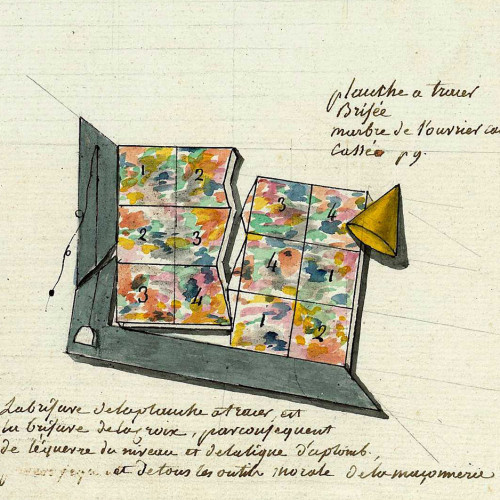 planche a tracer
Brisée
marbre de l'ouvrier
Cassée pg.
1 2
2 3
3 4
3 4
4 1
1 2
La brisure de la planche a tracer, est
la brisure de la croix, par consequent
de l'équerre du niveau et de la ligne d'aplomb,
et de tous les outils morale de la maçonnerie